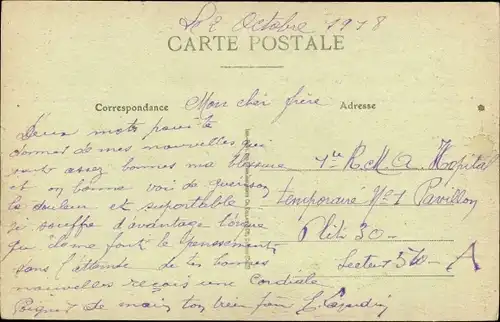 Le 2 Octobre 1918
CARTE POSTALE
Correspondance
Adresse
Mon cher frère
Deux mots pour te
donner de mes nouvelles qui
sont assez bonnes ma blessure
et en bonne voi de guerison
la douleur et suportable
je souffre d'avantage lorsque
qu'ons me font le pansement
sans l'attende de tes bonnes
nouvelles reçois une Cordiale
Poignet de main ton
Hopital
temporaire No 1 Pavillon
Lit 30 -
Secteur 510 - A